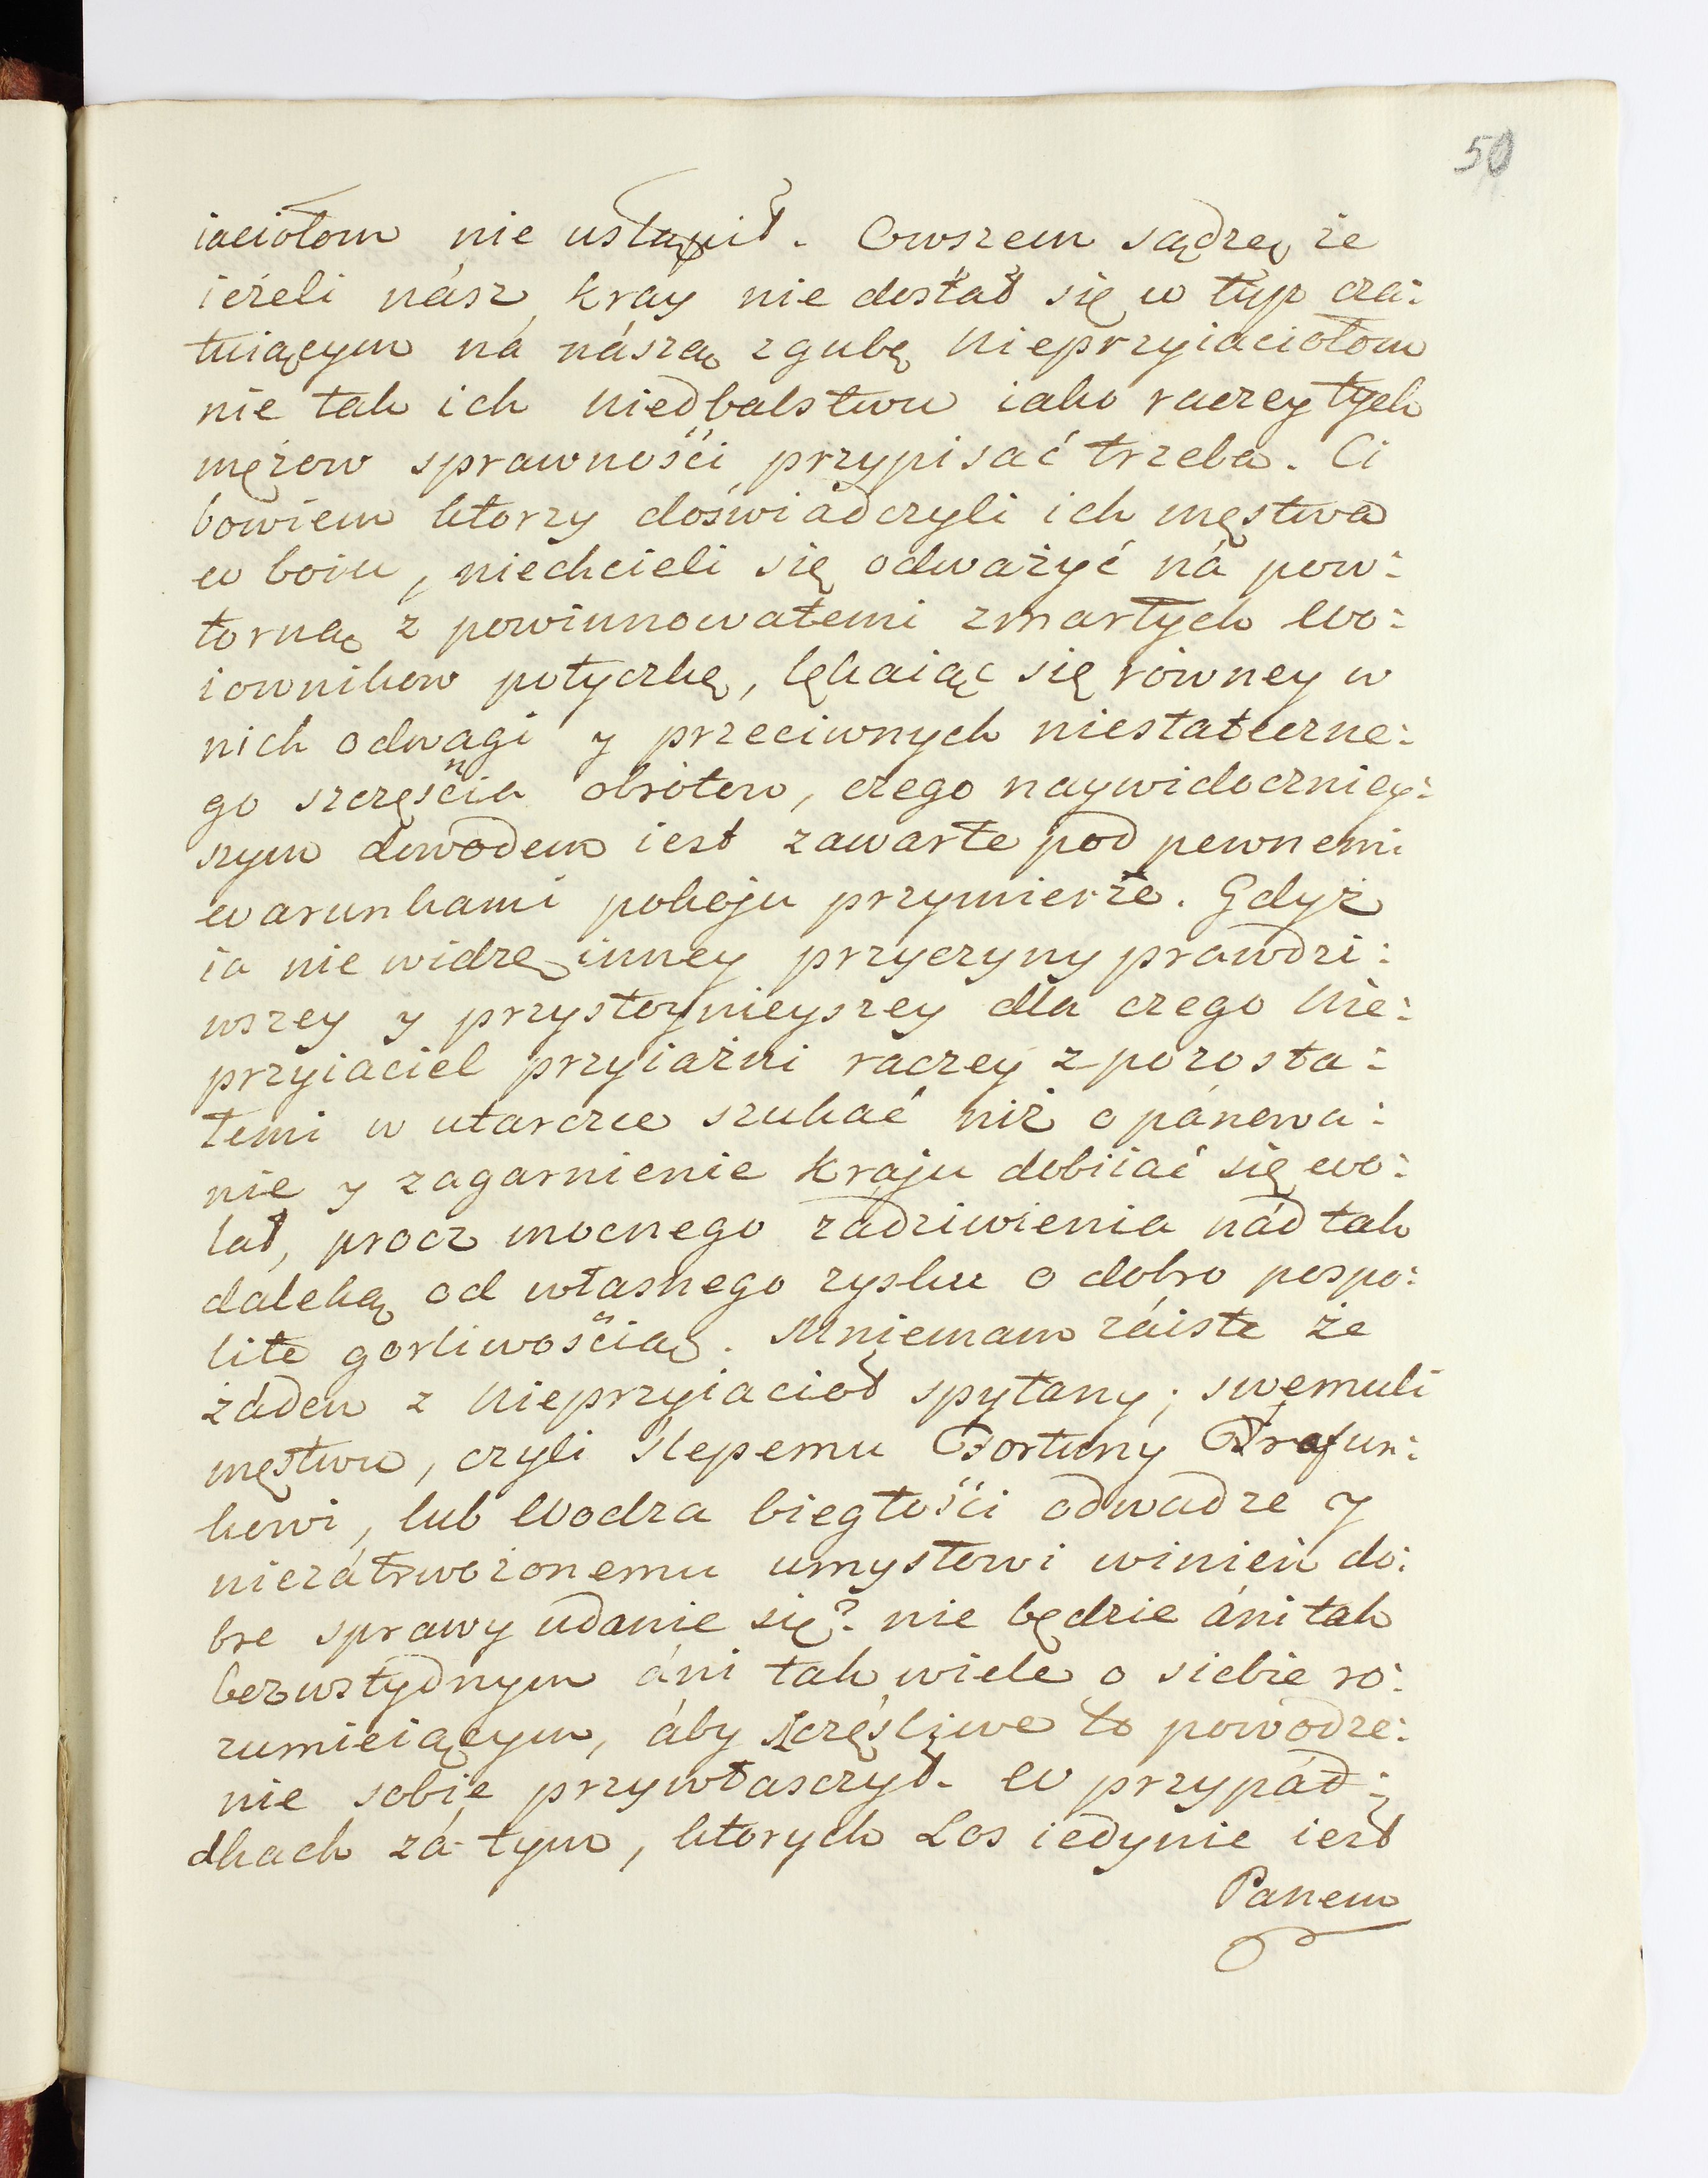 50
iaciołom nie ustąpił. Owszem sądzę że
ieżeli nász kray nie dostał się w łup cza:
tuiącym ná nászą zgubę Nieprzyiaciołom
nie tak ich Niedbalstwu iako raczey tych
mężow sprawności przypisać trzeba. Ci
bowiem ktorzy doświadczyli ich męstwa
w boiu, niechcieli się odważyć ná pow:
torną z powinnowatemi zmarłych Wo:
iownikow potyczkę, lękaiąc się równey w
nich odwagi y przeciwnych niestateczne:
go szczęścia obrotow, czego naywidoczniey:
szym dowodem iest zawarte pod pewnemi
warunkami pokoju przymierze. Gdyż
ia nie widzę inney przyczyny prawdzi:
wszey y przystoynieyszey dla czego Nie:
przyiaciel przyiaźni raczey z pozosta:
łemi w utarczce szukać niż o pánowa:
nie y zagarnienie Kraju dobiiać się wo:
lał, procz mocnego zadziwienia nád tak
daleką od własnego zysku o dobro pospo:
lite gorliwością. Mniemam záiste że
żáden z Nieprzyiacioł spytany; swemuli
męstwu, czyli ślepemu Fortuny Trafun:
kowi, lub Wodza biegłości odwadze y
niezátrwożonemu umysłowi winień do:
bre sprawy udanie się? nie będzie áni tak
bezwstydnym áni tak wiele o siebie ro:
zumieiącym, áby szczęśliwe to powodze:
nie sobie przywłasczył. W przypád:
dkach zá tym, ktorych Los iedynie iest
Panem